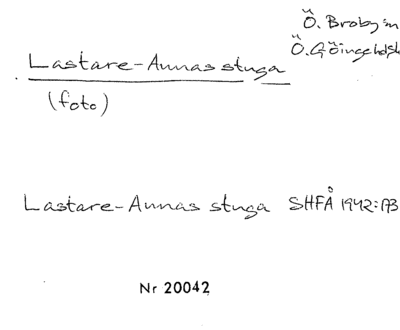 Ö. Broby sn
Ö. Göinge hd, Sk
Lastare-Annas stuga
(foto)
Lastare-Annas stuga SHFÅ 1942:173
Nr 20042